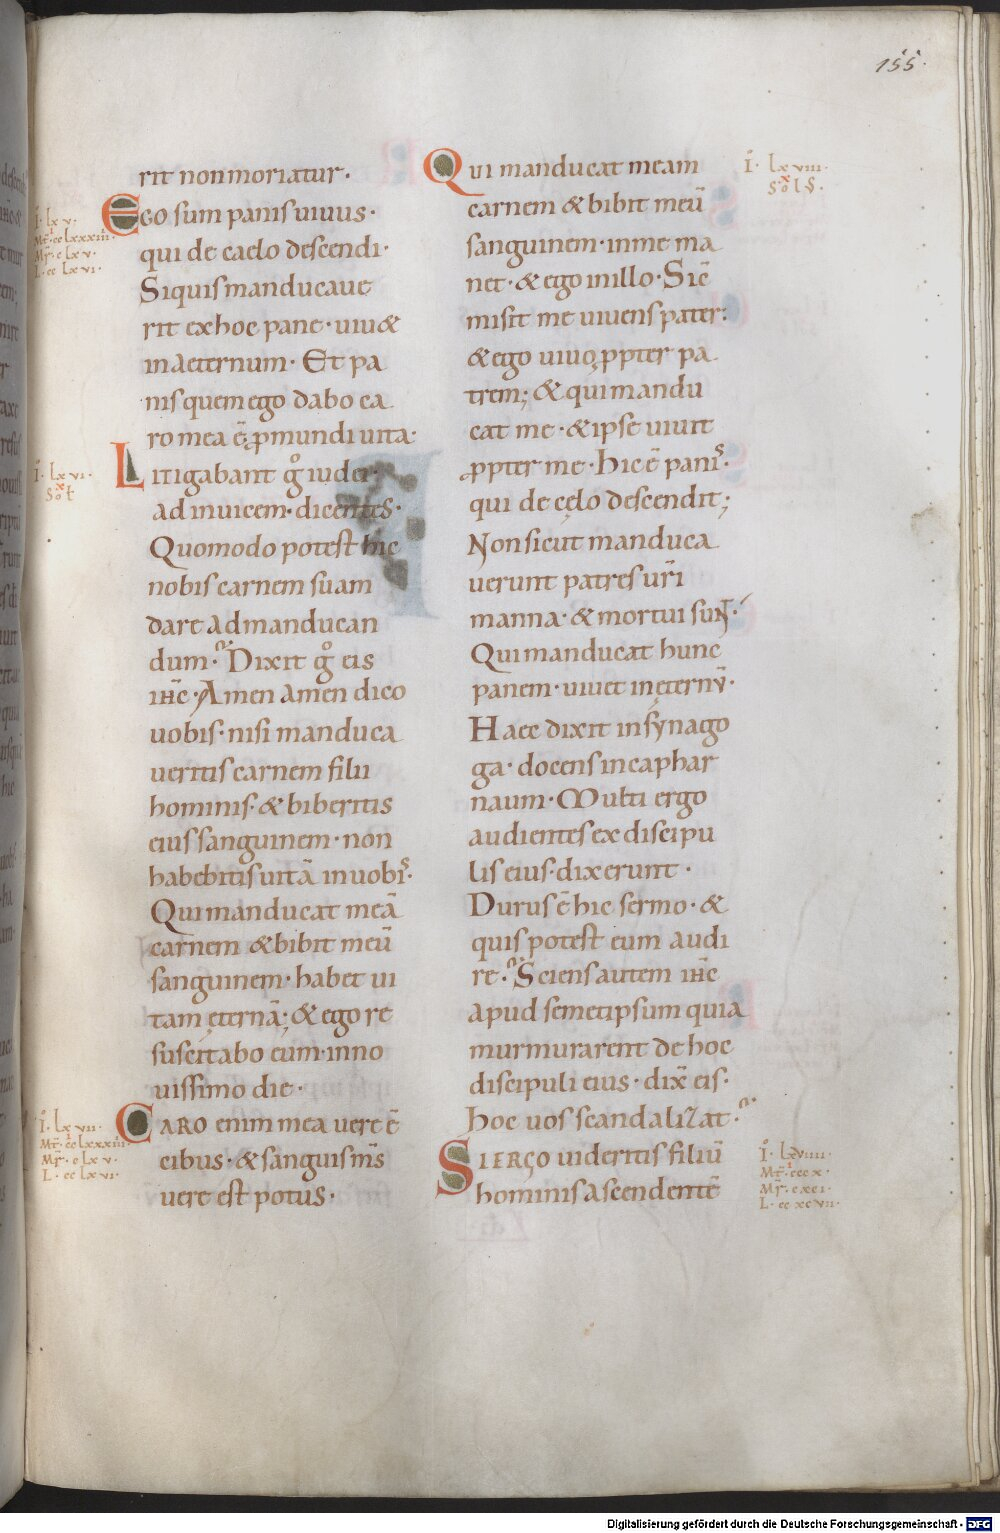 155.
rit non moriatur·
EGO sum panis uiuus·
qui de caelo descendi·
Siquis manducaue
rit ex hoc pane· uiu&
in aeternum· Et pa
nis quem ego dabo ca
ro mea ē ꝓ mundi uita·
Litigabant gͦ iudei
ad inuicem· dicentes·
Quomodo potest hic
nobis carnem suam
dare ad manducan
dum· Dixit gͦ eis
ihc̄· Amen amen dico
uobis· nisi manduca
ueritis carnem filii
hominis· & biberitis
eius sanguinem· non
habebitis uitā in uobis·
Qui manducat meā
carnem & bibit meū
sanguinem· habet ui
tam ęternā; & ego re
suscitabo eum· in no
uissimo die·
CARO enim mea uere ē
cibus· & sanguis ms̄
uere est potus·
I· lx v·
Mt̄· cc lxxxiii·
Mr̄· c lx v·
L· cc lx vi·
I· lx vi·
Sol
I· lx vii·
Mt̄· cc lxxxiii·
Mr̄· c lx v·
L· cc lx vi·
Qui manducat meam
carnem & bibit meū
sanguinem· in me ma
net· & ego in illo· Sic̄
misit me uiuens pater·
& ego uiuo ꝓpter pa
trem; & qui mandu
cat me· & ipse uiuit
ꝓpter me· hic ē panis·
qui de cęlo descendit;
Non sicut manduca
uerunt patres ur̄i
manna· & mortui sunt·
Qui manducat hunc
panem· uiuet in ęternū·
Haec dixit in synago
ga· docens in caphar
naum· Multi ergo
audientes ex discipu
lis eius· dixerunt·
Durus ē hic sermo· &
quis potest eum audi
re· Sciens autem ihc̄
apud semetipsum quia
murmurarent de hoc
discipuli eius· dix̄ eis·
hoc uos scandalizat·
SI ERGO uideritis filiū
hominis ascendentē
I· lx viii·
Sol S·
I· lxviiii·
Mt̄· ccc x·
Mr̄· c xci·
L· cc xcvii·
Digitalisierung gefördert durch die Deutsche Forschungsgemeinschaft - DFG